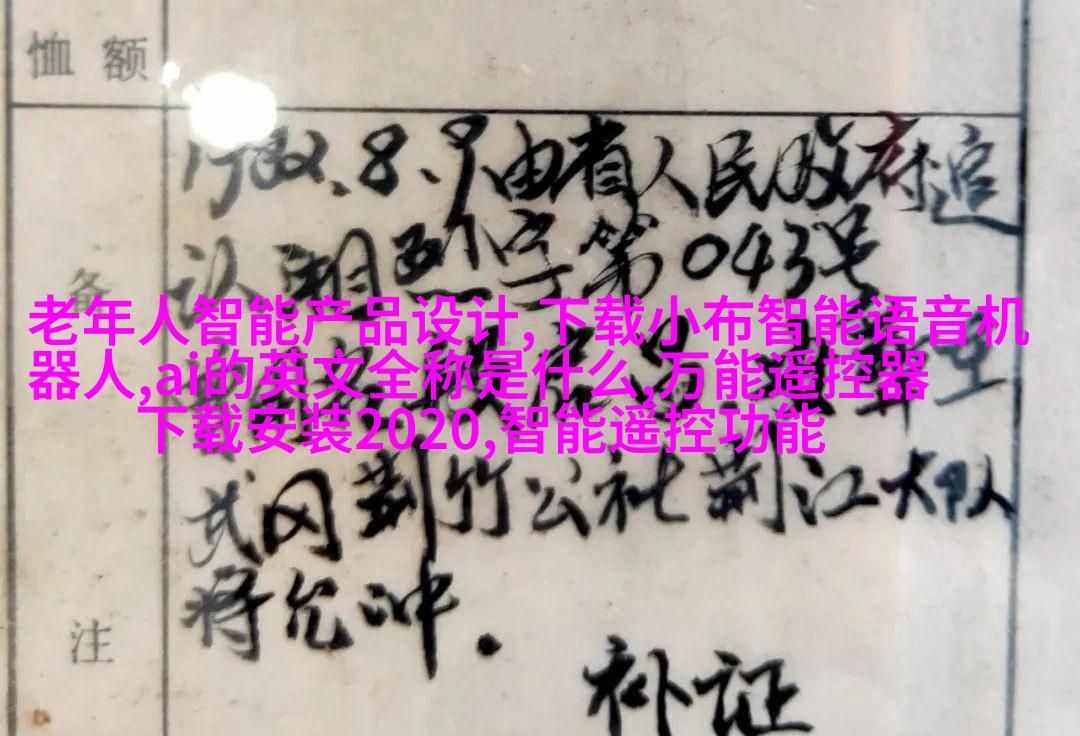 恤额
备
注
1982.8.9由省人民政府追
认湘烈字第043号
武冈荆竹公社荆江大队
蒋允冲.
补证
老年人智能产品设计,下载小布智能语音机
器人,ai的英文全称是什么,万能遥控器
下载安装2020,智能遥控功能